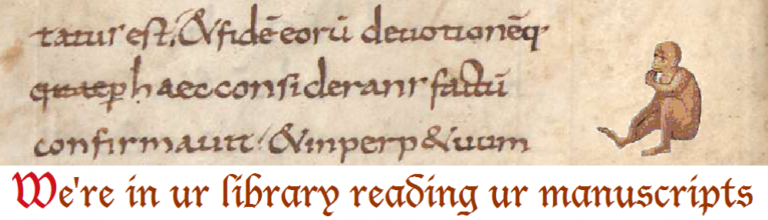 tatus est, & fidē eorū deuotionēq;
quaep haec considerans factū
confirmauit / & inperp&uum
We're in ur library reading ur manuscripts